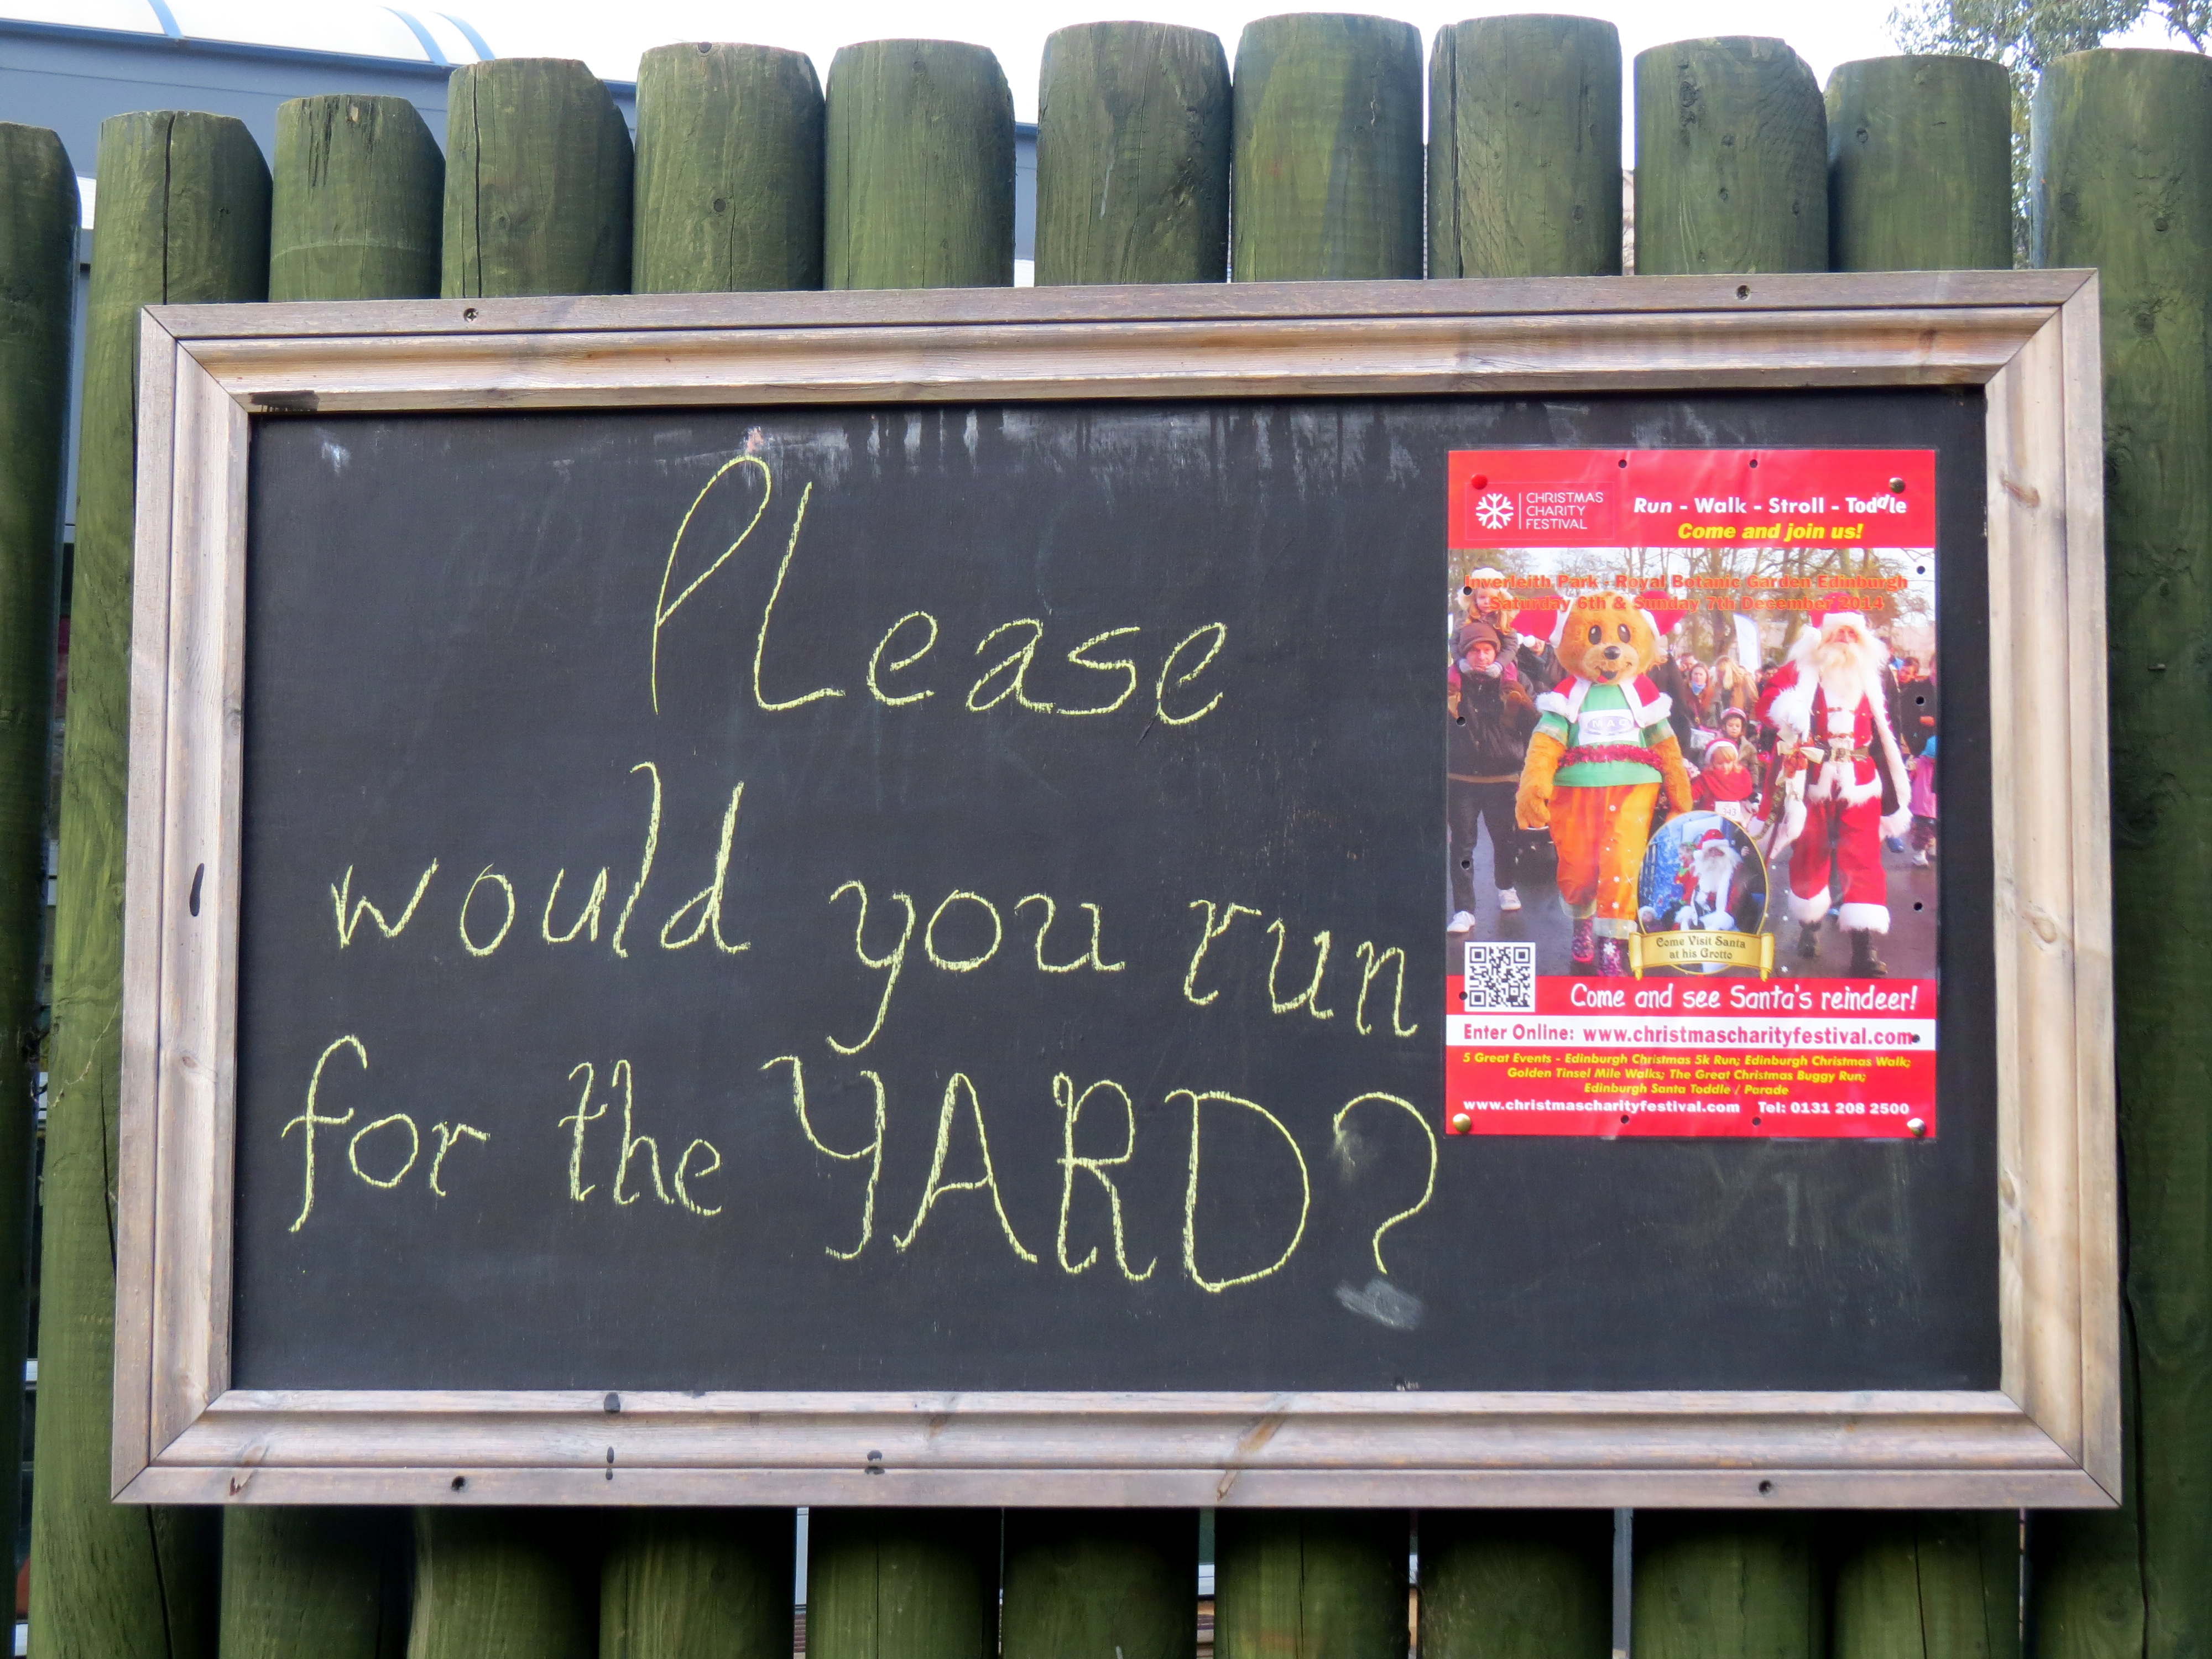 PLease
would you run
for the YARD?
CHRISTMAS
CHARITY
FESTIVAL
Run - Walk - Stroll - Toddle
Come and join us!
Inverleith Park - Royal Botanic Garden Edinburgh
Saturday 6th & Sunday 7th December 2014
MAC
343
Come Visit Santa
at his Grotto
Come and see Santa's reindeer!
Enter Online: www.christmascharityfestival.com
5 Great Events - Edinburgh Christmas 5k Run; Edinburgh Christmas Walk;
Golden Tinsel Mile Walks; The Great Christmas Buggy Run;
Edinburgh Santa Toddle / Parade
www.christmascharityfestival.com Tel: 0131 208 2500